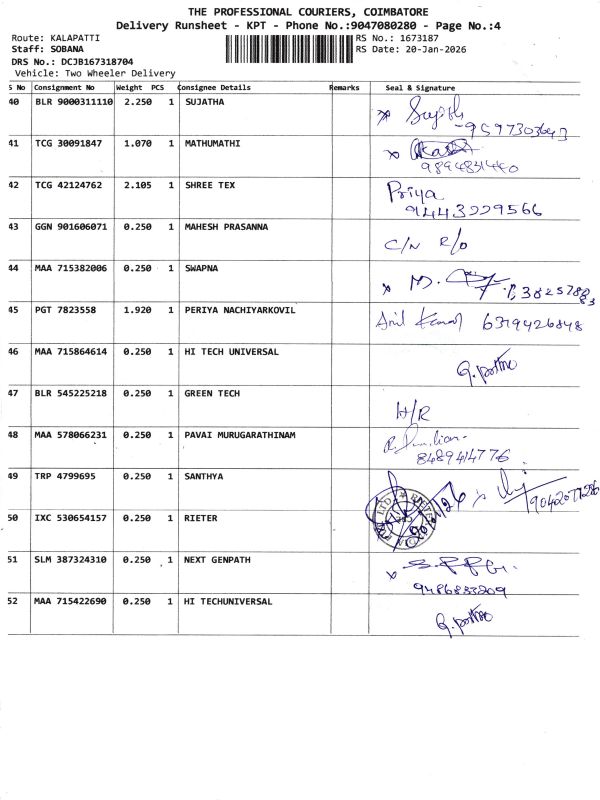 THE PROFESSIONAL COURIERS, COIMBATORE
Delivery Runsheet - KPT - Phone No.:9047080280 - Page No.:4
Route: KALAPATTI RS No.: 1673187
Staff: SOBANA RS Date: 20-Jan-2026
DRS No.: DCJB167318704
Vehicle: Two Wheeler Delivery
S No Consignment No Weight PCS Consignee Details Remarks Seal & Signature
40 BLR 9000311110 2.250 1 SUJATHA
41 TCG 30091847 1.070 1 MATHUMATHI
42 TCG 42124762 2.105 1 SHREE TEX Priya
9443229566
43 GGN 901606071 0.250 1 MAHESH PRASANNA
C/N R/D
44 MAA 715382006 0.250 1 SWAPNA
45 PGT 7823558 1.920 1 PERIYA NACHIYARKOVIL Anil Kumar 6379426848
46 MAA 715864614 0.250 1 HI TECH UNIVERSAL
47 BLR 545225218 0.250 1 GREEN TECH
H/R
48 MAA 578066231 0.250 1 PAVAI MURUGARATHINAM
8489414776
49 TRP 4799695 0.250 1 SANTHYA
50 IXC 530654157 0.250 1 RIETER
51 SLM 387324310 0.250 1 NEXT GENPATH
9486833209
52 MAA 715422690 0.250 1 HI TECHUNIVERSAL